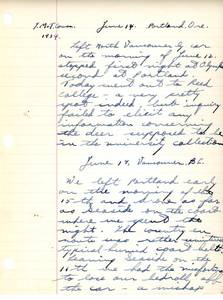 T. McT. Cowan June 14. Portland, Ore.
1939.
Left North Vancouver by car
on the morning of June 12.
stopped first night at Olympia
second at Portland.
Today went out to Reed
College - a very pretty
spot indeed, but inquiry
failed to elicit any
information concerning
the deer supposed to be
in the university collection
June 19. Vancouver, B.C.
We left Portland early
on the morning of the
15-th and drove as far
as Seaside on the coast
where we spent the
night. The country en
route was
typical humid coast belt.
Leaving Seaside on the
16-th we had the misfortune
to lose our bedroll off
the car - a mishap